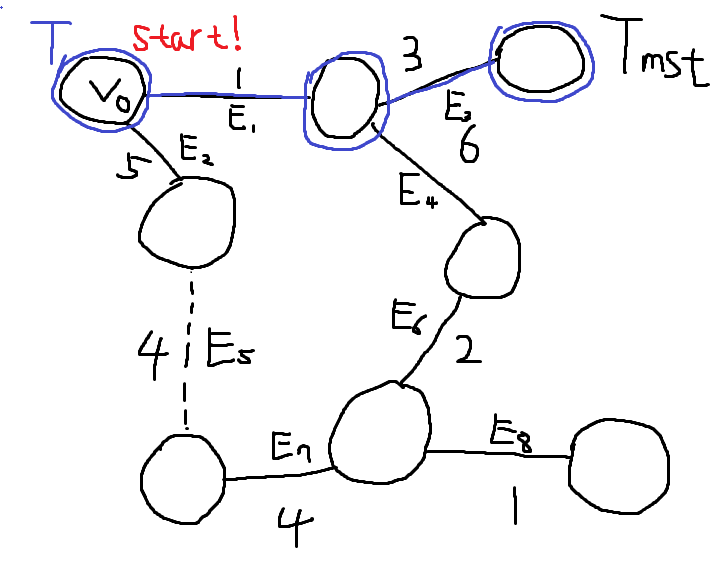 T start!
V₀
1
E₁
3
E₃
Tmst
5 E₂
6
E₄
4 E₅
E₆
2
E₇
4
E₈
1